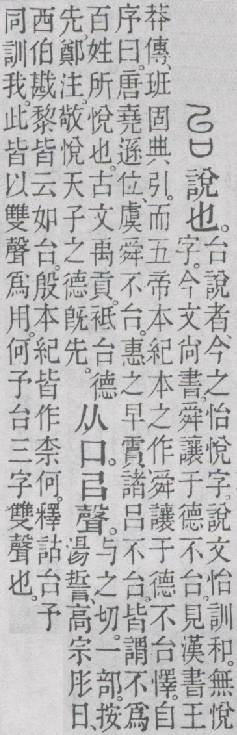 說也。台說者、今之怡悅字。說文怡訓和。無悅
字。今文尙書。舜讓于德不台。見漢書王
莽傳、班固典引。而五帝本紀本之作舜讓于德不台懌。自
序曰。唐堯遜位。虞舜不台。惠之早霣。諸呂不台。皆謂不爲
百姓所悅也。古文禹貢。祗台德
先。鄭注。敬悅天子之德旣先。
从口。㠯聲。与之切。一部。按
湯誓、高宗肜日、
西伯戡黎皆云如台。殷本紀皆作柰何。釋詁台予
同訓我。此皆以雙聲爲用。何予台三字雙聲也。